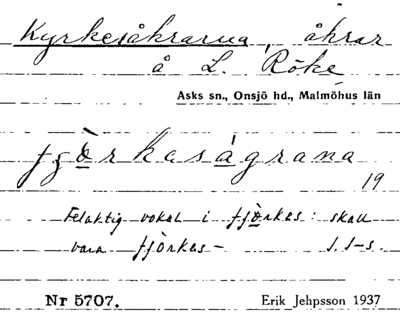 Kyrkesåkrarna, åkrar
å L. Röke
Asks sn., Onsjö hd., Malmöhus län
fjò̱rkasá̱grana
19
Felaktig vokal i fjò̱rkas: skall
vara fjòrkas- I. I-s.
Nr 5707. Erik Jehpsson 1937